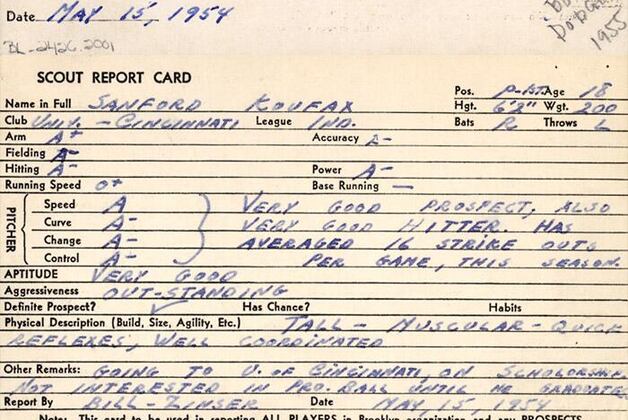 Date MAY 15, 1954
BL-2426.2001
1955
SCOUT REPORT CARD
Pos. P-1ST. Age 18
Name in Full SANFORD KOUFAX Hgt. 6'2" Wgt. 200
Club UNIV. - CINCINNATI League IND. Bats R Throws L
Arm A+ Accuracy A-
Fielding A-
Hitting A- Power A-
Running Speed O+ Base Running —
PITCHER
Speed A VERY GOOD PROSPECT, ALSO
Curve A- VERY GOOD HITTER. HAS
Change A- AVERAGED 16 STRIKE OUTS
Control A- PER GAME, THIS SEASON.
APTITUDE VERY GOOD
Aggressiveness OUT-STANDING
Definite Prospect? ✓ Has Chance? Habits
Physical Description (Build, Size, Agility, Etc.) TALL - MUSCULAR - QUICK
REFLEXES, WELL COORDINATED
Other Remarks: GOING TO U. OF CINCINNATI, ON SCHOLARSHIP.
NOT INTERESTED IN PRO. BALL UNTIL HE GRADUATES
Report By BILL - ZINSER Date MAY 15 1954
Note: This card to be used in reporting ALL PLAYERS in Brooklyn organization and any PROSPECTS